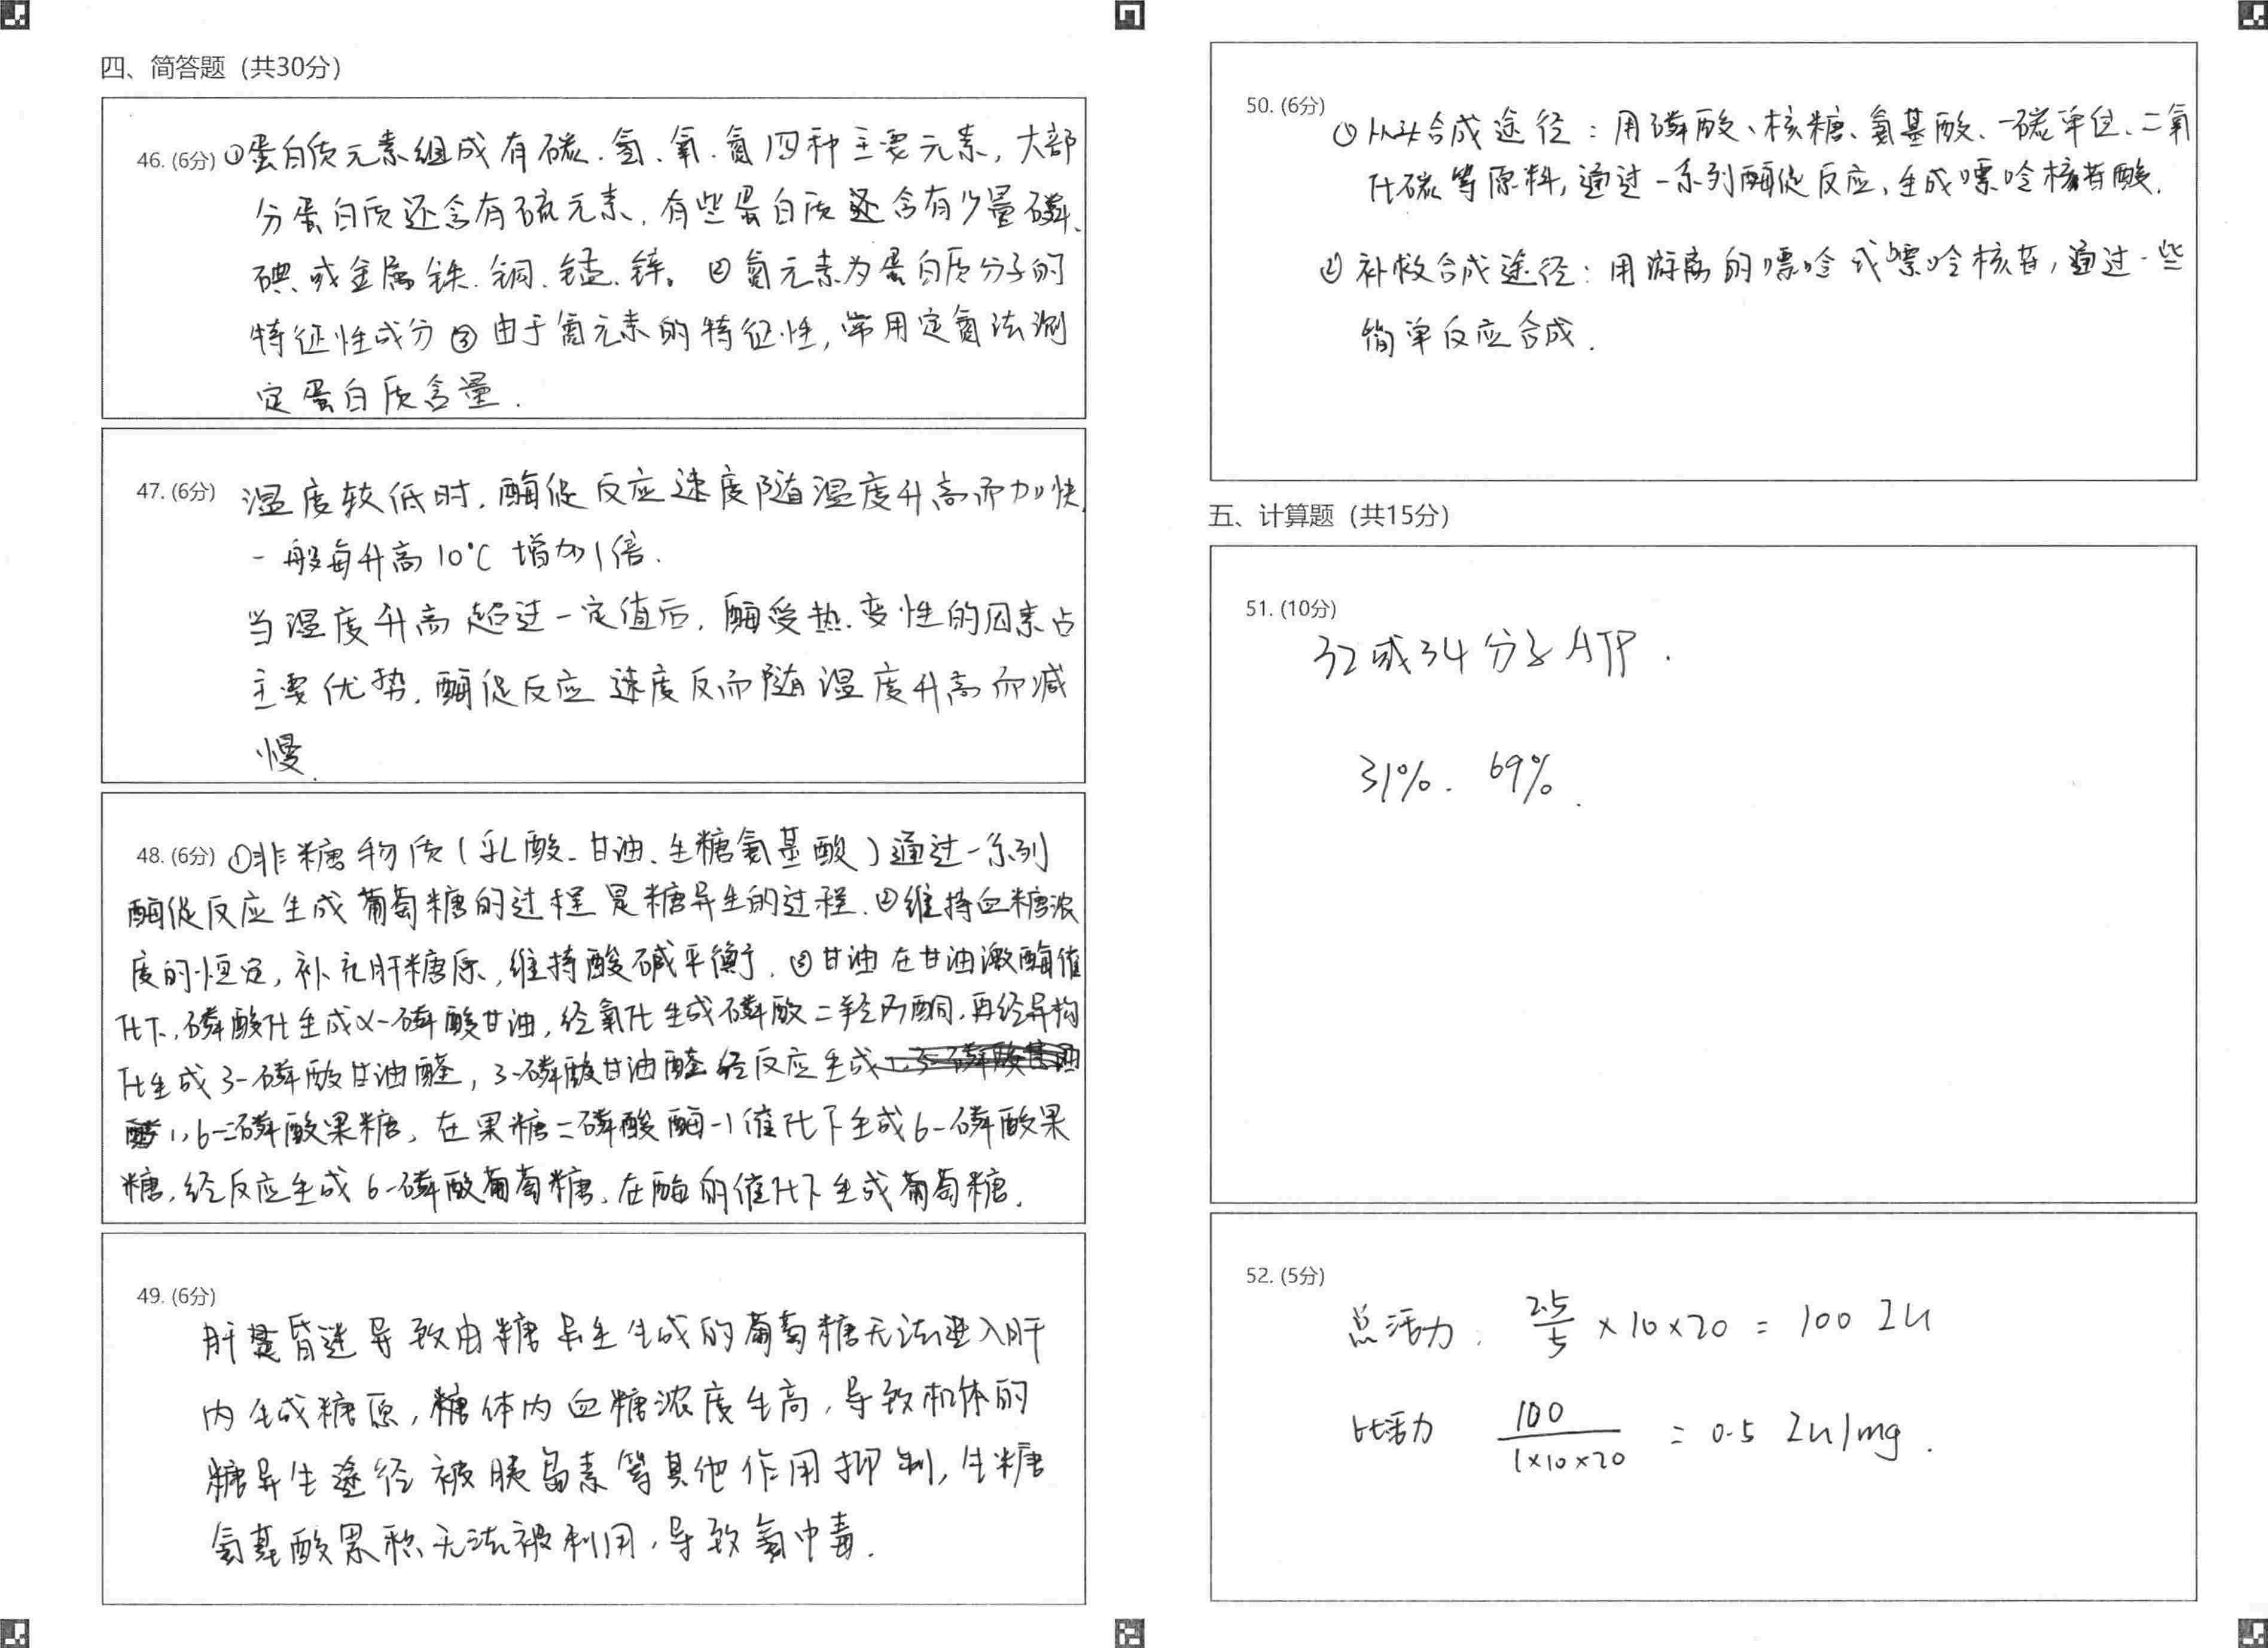 四、简答题（共30分）
46. (6分) ①蛋白质元素组成有碳、氢、氧、氮四种主要元素，大部
分蛋白质还含有硫元素，有些蛋白质还含有少量磷、
碘或金属铁、铜、锰、锌。②氮元素为蛋白质分子的
特征性成分 ③由于氮元素的特征性，常用定氮法测
定蛋白质含量.
47. (6分) 温度较低时，酶促反应速度随温度升高而加快，
一般每升高10℃ 增加1倍.
当温度升高超过一定值后，酶受热变性的因素占
主要优势，酶促反应速度反而随温度升高而减
慢.
48. (6分) ①非糖物质（乳酸、甘油、生糖氨基酸）通过一系列
酶促反应生成葡萄糖的过程是糖异生的过程. ②维持血糖浓
度的恒定，补充肝糖原，维持酸碱平衡. ③甘油在甘油激酶催
化下，磷酸化生成α-磷酸甘油，经氧化生成磷酸二羟丙酮，再经异构
化生成3-磷酸甘油醛，3-磷酸甘油醛经反应生成
1,6-二磷酸果糖，在果糖二磷酸酶-1催化下生成6-磷酸果
糖，经反应生成6-磷酸葡萄糖，在酶的催化下生成葡萄糖.
49. (6分)
肝昏迷导致由糖异生生成的葡萄糖无法进入肝
内生成糖原，糖体内血糖浓度生高，导致机体的
糖异生途径被胰岛素等其他作用抑制，生糖
氨基酸累积无法被利用，导致氨中毒.
50. (6分) ①从头合成途径：用磷酸、核糖、氨基酸、一碳单位、二氧
化碳等原料，通过一系列酶促反应，生成嘌呤核苷酸.
②补救合成途径：用游离的嘌呤或嘌呤核苷，通过一些
简单反应合成.
五、计算题（共15分）
51. (10分)
32或34分子ATP.
31%. 69%.
52. (5分)
总活力： 2.5/5 ×10×20 = 100 IU
比活力 100/(1×10×20) = 0.5 IU/mg.